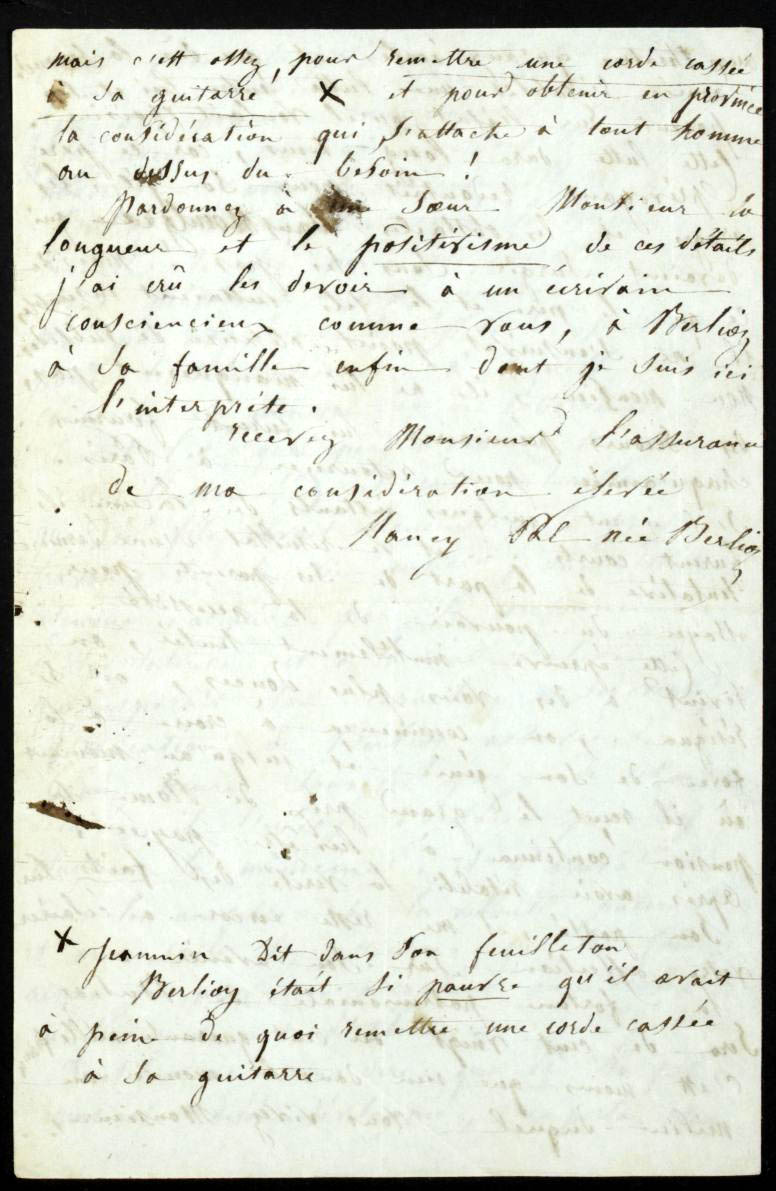 mais c'est assez, pour remettre une corde cassée
à sa guitarre X et pour obtenir en province
la considération qui s'attache à tout homme
au dessus du besoin !
Pardonnez à une Sœur Monsieur la
longueur et le positivisme de ces détails
j'ai crû les devoir à un écrivain
consciencieux comme vous, à Berlioz
à sa famille enfin dont je suis ici
l'interprète.
recevez Monsieur l'assurance
de ma considération élevée
Nancy Pal née Berlioz
X Jeannin dit dans son feuilleton
Berlioz était si pauvre qu'il avait
à peine de quoi remettre une corde cassée
à sa guitarre